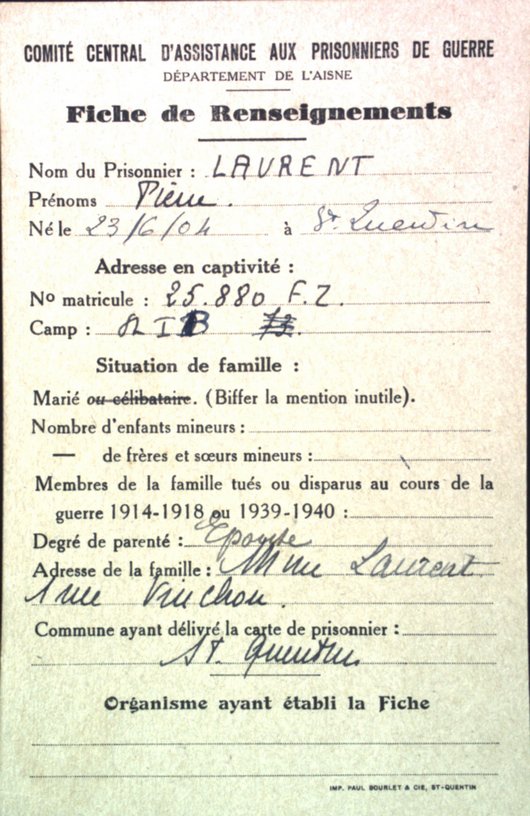 COMITÉ CENTRAL D'ASSISTANCE AUX PRISONNIERS DE GUERRE
DÉPARTEMENT DE L'AISNE
Fiche de Renseignements
Nom du Prisonnier : LAURENT
Prénoms Pierre.
Né le 23/6/04 à St Quentin
Adresse en captivité :
No matricule : 25.880 F.Z.
Camp : I B
Situation de famille :
Marié ou célibataire. (Biffer la mention inutile).
Nombre d'enfants mineurs :
— de frères et sœurs mineurs :
Membres de la famille tués ou disparus au cours de la
guerre 1914-1918 ou 1939-1940 :
Degré de parenté : Epouse
Adresse de la famille : Mme Laurent
1 rue
Commune ayant délivré la carte de prisonnier :
St. Quentin
Organisme ayant établi la Fiche
IMP. PAUL BOURLET & CIE, ST-QUENTIN